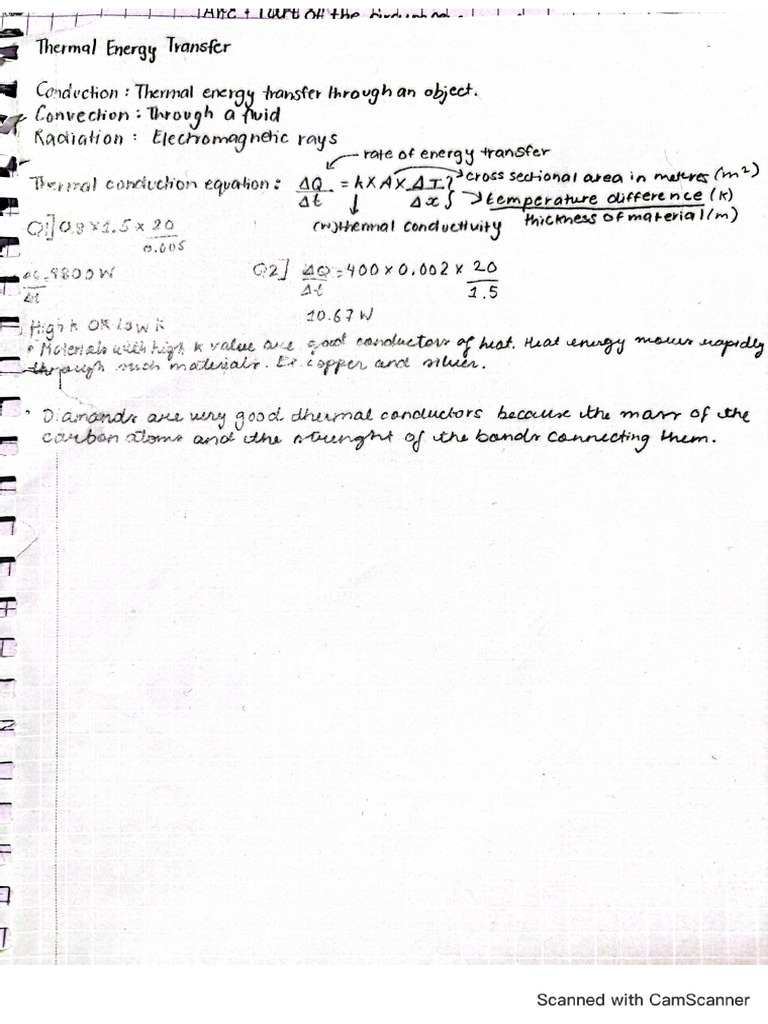 Thermal Energy Transfer
Conduction : Thermal energy transfer through an object.
Convection : Through a fluid
Radiation : Electromagnetic rays
rate of energy transfer
Thermal conduction equation : ΔQ/Δt = k X A X ΔT/Δx
cross sectional area in metres (m²)
temperature difference (k)
thickness of material (m)
thermal conductivity
Q1] 0.8 × 1.5 × 20/0.005
4800 W
Δt
Q2] ΔQ/Δt = 400 × 0.002 × 20/1.5
10.67 W
High k OR low k
• Materials with high k value are good conductors of heat. Heat energy moves rapidly
through such materials. Ex. copper and silver.
• Diamonds are very good dhermal conductors because the mass of the
carbon atoms and the strenght of the bonds connecting them.
Scanned with CamScanner